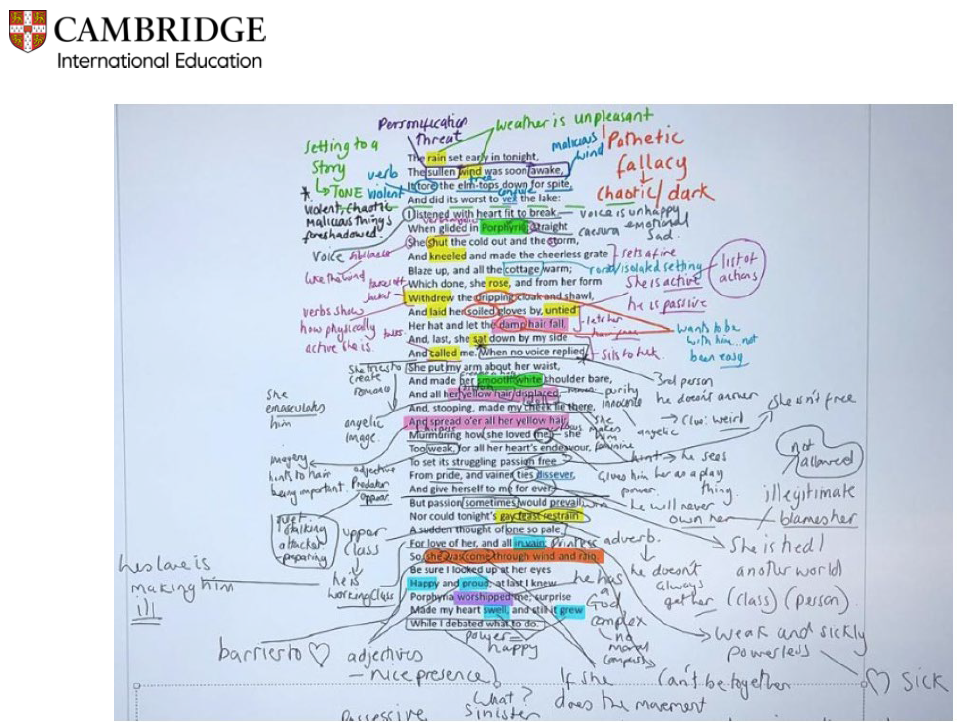 CAMBRIDGE
International Education
Personification
threat
weather is unpleasant
Setting to a
story
↳ TONE
verb
violent
malicious
wind
Pathetic
fallacy
chaotic / dark
violent, chaotic
malicious things
foreshadowed.
The rain set early in tonight,
The sullen wind was soon awake,
It tore the elm-tops down for spite,
And did its worst to vex the lake:
I listened with heart fit to break.
voice is unhappy
emotional
sad.
When glided in Porphyria; straight
caesura
voice
sibilance
She shut the cold out and the storm,
And kneeled and made the cheerless grate
sets a fire
Blaze up, and all the cottage warm;
isolated setting
list of
actions
like the wind
Which done, she rose, and from her form
she is active
Withdrew the dripping cloak and shawl,
he is passive
verbs show
how physically
active she is.
And laid her soiled gloves by, untied
Her hat and let the damp hair fall,
lets her
wants to be
with him
not
been easy
And, last, she sat down by my side
And called me. When no voice replied,
sits to talk
she tries to
create
romance
She put my arm about her waist,
And made her smooth white shoulder bare,
3rd person
he doesn't answer
she isn't free
And all her yellow hair displaced,
purity
innocence
she
emasculates
him
angelic
image.
And, stooping, made my cheek lie there,
And spread o'er all her yellow hair,
she
makes
him
feminine
angelic
→ Clue: weird
Murmuring how she loved me — she
Too weak, for all her heart's endeavour,
not
allowed
imagery
hints to hair
being important.
adjective
Predator
To set its struggling passion free
hint → he sees
her as a play
thing.
From pride, and vainer ties dissever,
Gives him
power.
And give herself to me for ever.
illegitimate
But passion sometimes would prevail,
he will never
own her
/ blames her
Nor could tonight's gay feast restrain
quiet
stalking
attacker
- preparing
upper
class
A sudden thought of one so pale
For love of her, and all in vain:
princess
adverb.
She is tied /
another world
(class) (person).
So, she was come through wind and rain.
his love is
making him
ill
he is
working class
Be sure I looked up at her eyes
Happy and proud; at last I knew
he has
a
God
complex
no
moral
compass
he doesn't
always
get her
Porphyria worshipped me; surprise
Made my heart swell, and still it grew
While I debated what to do.
weak and sickly
powerless
barriers to ♡
adjectives
– nice presence
power =
happy
can't be together
♡ sick
What?
sinister
If she
does the movement
Possessive